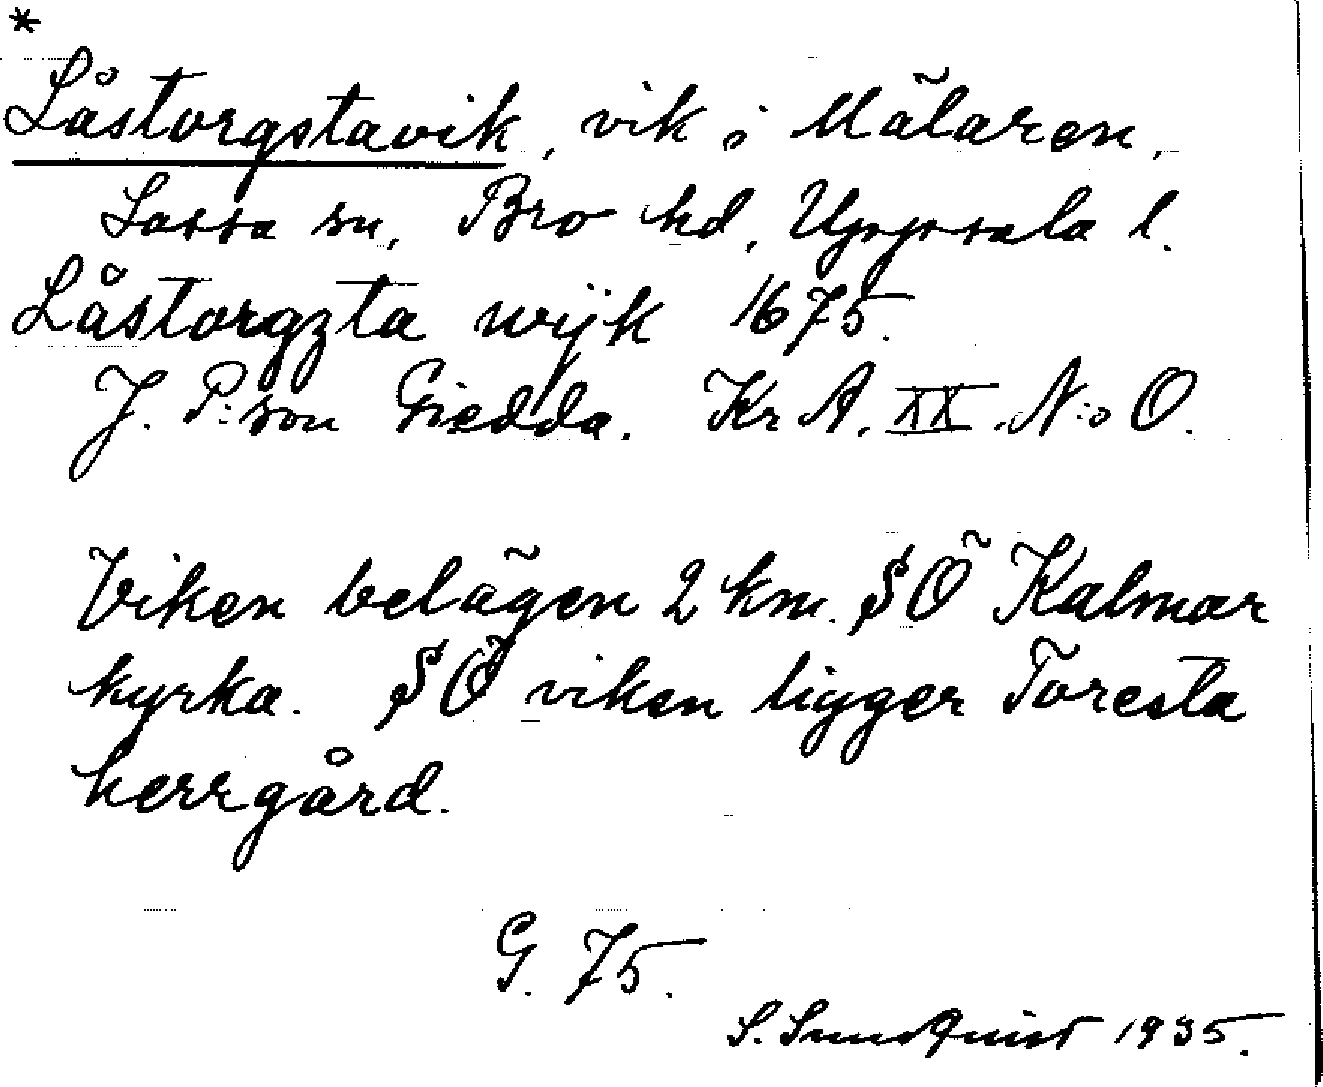 *
Låstorgstavik, vik i Mälaren,
Lossa sn, Bro hd, Uppsala l.
Låstorgzta wijk 1675.
J. P:son Giedda. Kr A. XX. N:o O.
Viken belägen 2 km. SÖ Kalmar
kyrka. SÖ viken ligger Toresta
herrgård.
G. 75.
S. Sundquist 1935.